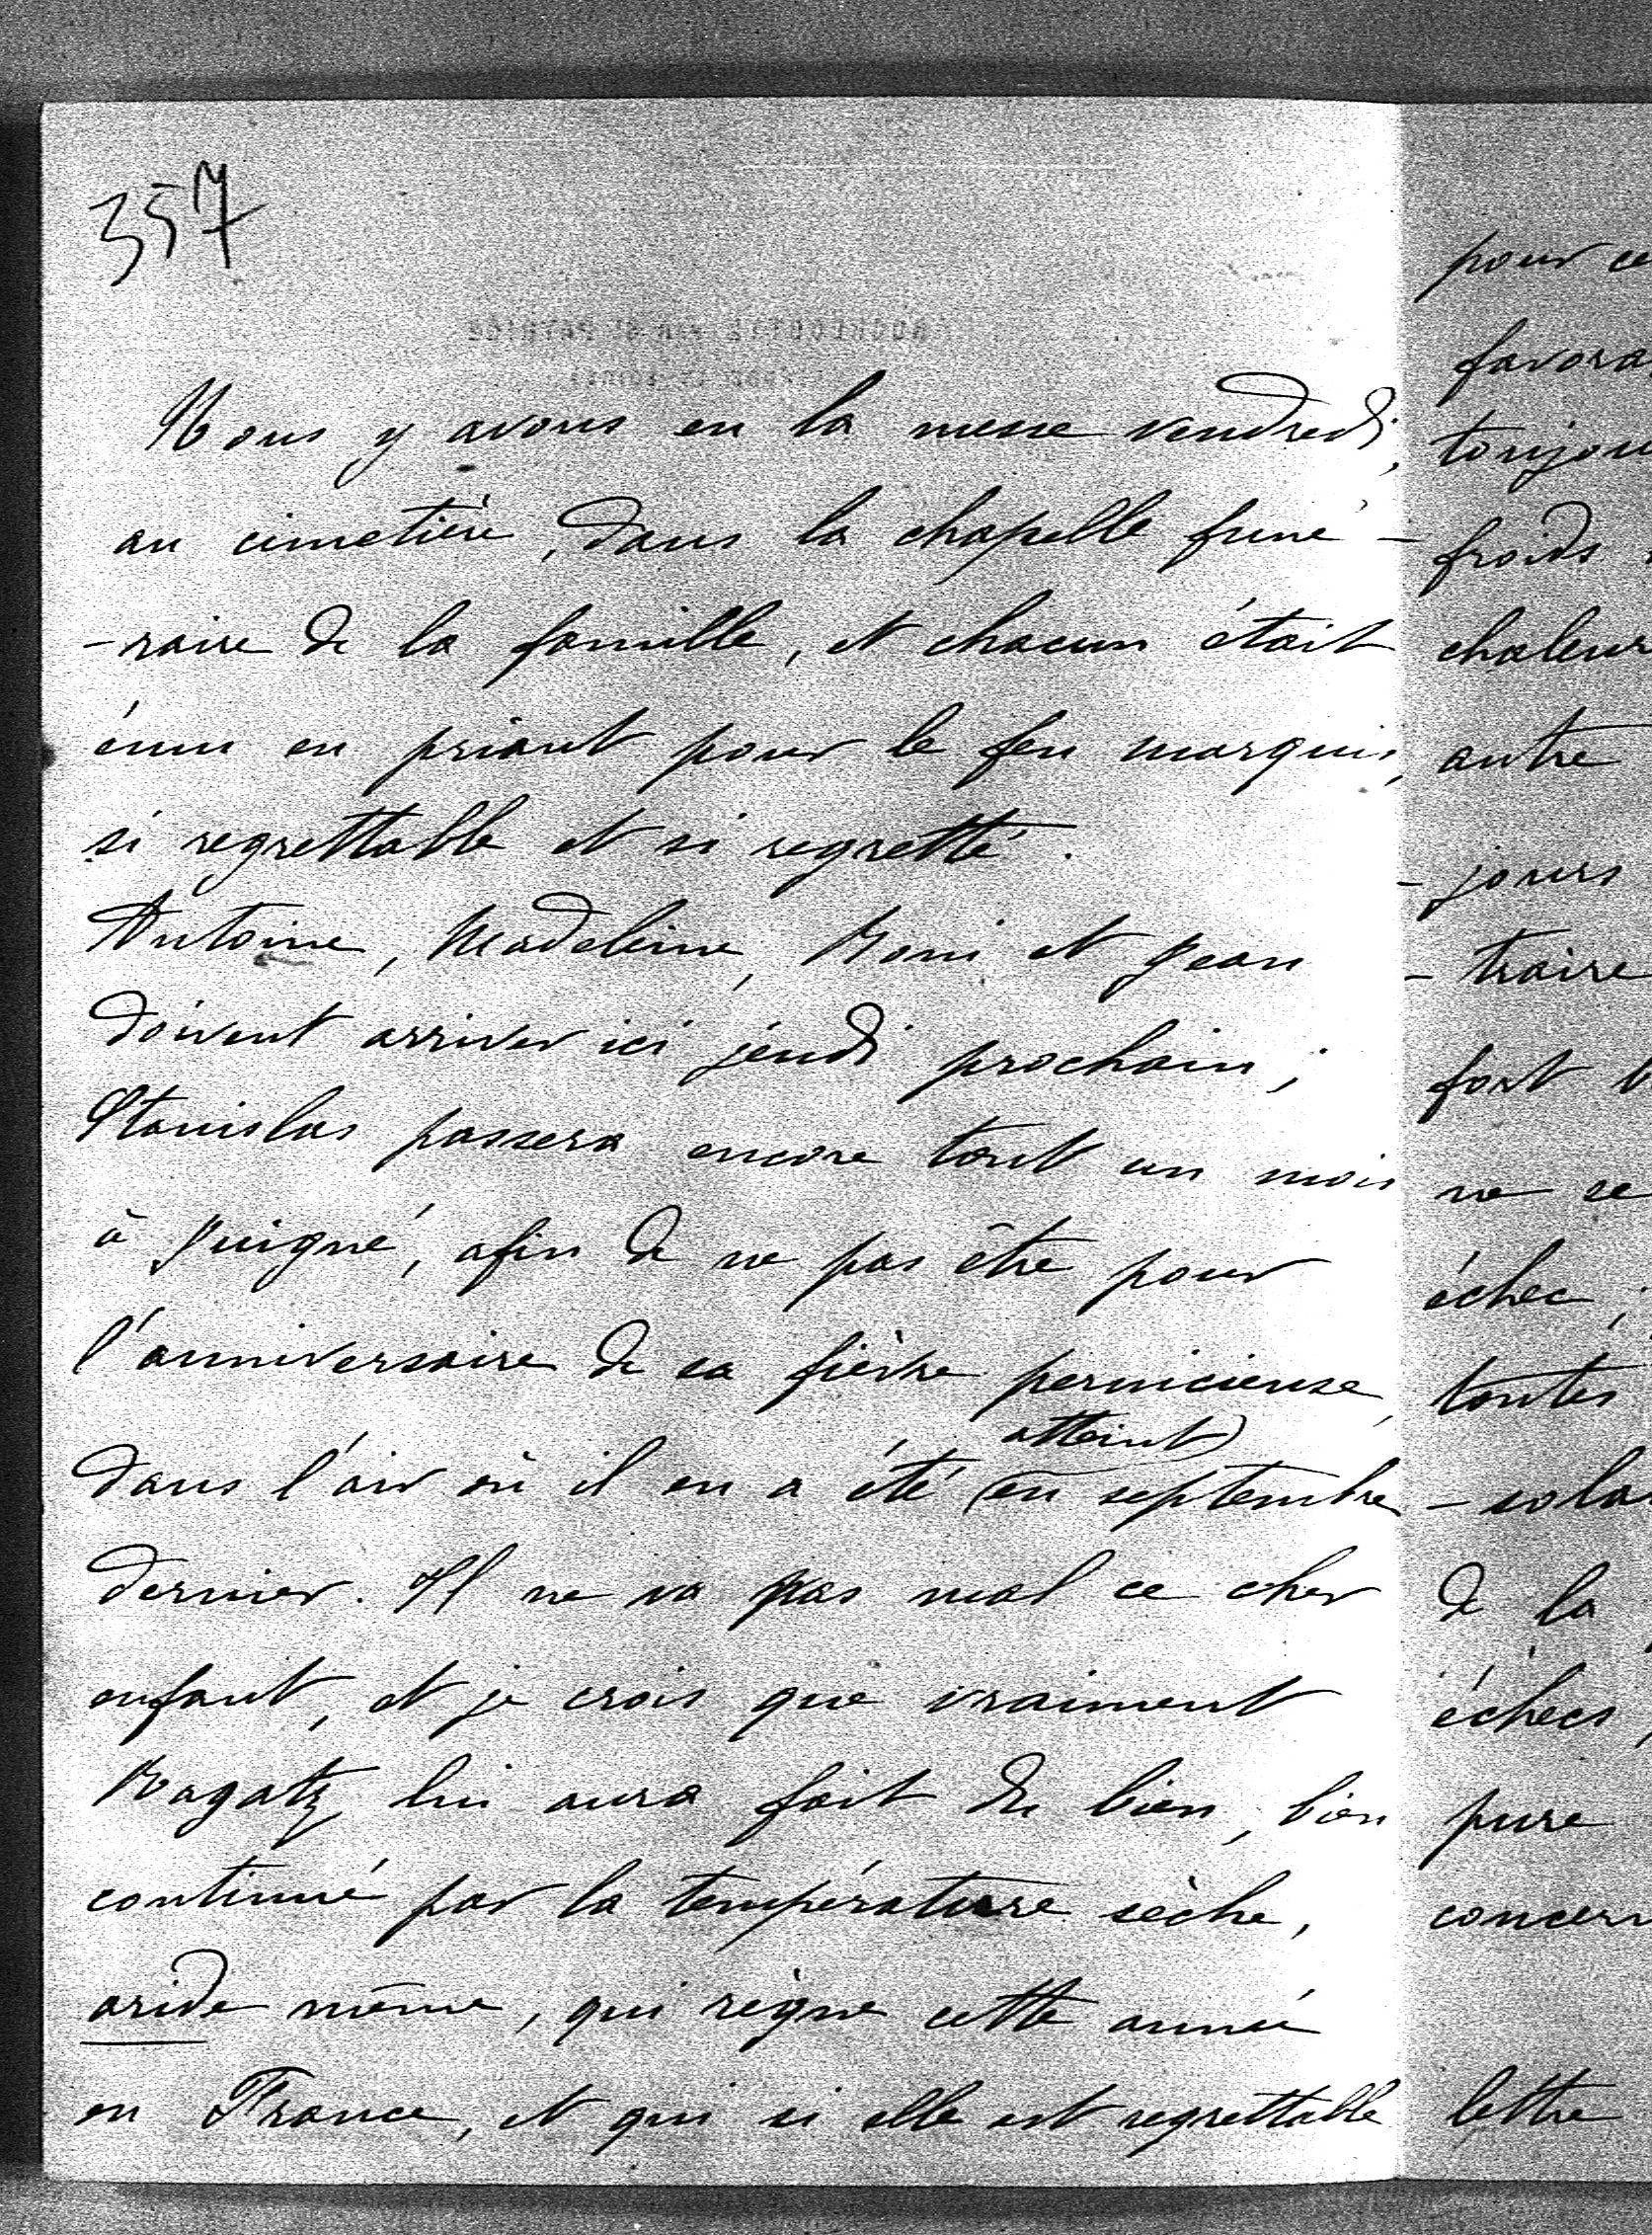 357
Nous y avons eu la messe vendredi,
au cimetière, dans la chapelle funé-
-raire de la famille, et chacun était
ému en priant pour le feu marquis,
si regrettable et si regretté.
Antoine, Madeleine, Roni et Jean
doivent arriver ici jeudi prochain;
Stanislas passera encore tout un mois
à Juigné, afin de ne pas être pour
l'anniversaire de sa fièvre pernicieuse,
dans l'air où il en a été atteint en septembre
dernier. Il ne va pas mal ce cher
enfant, et je crois que vraiment
Ragatz lui aura fait du bien, bien
continué par la température sèche,
aride même, qui règne cette année
en France, et qui si elle est regrettable
pour ce
favora
toujou
froids
chaleur
autre
-jours
-traire
fort
ne se
échec,
toutes
-sola
de la
échecs,
pure
concern
lettre